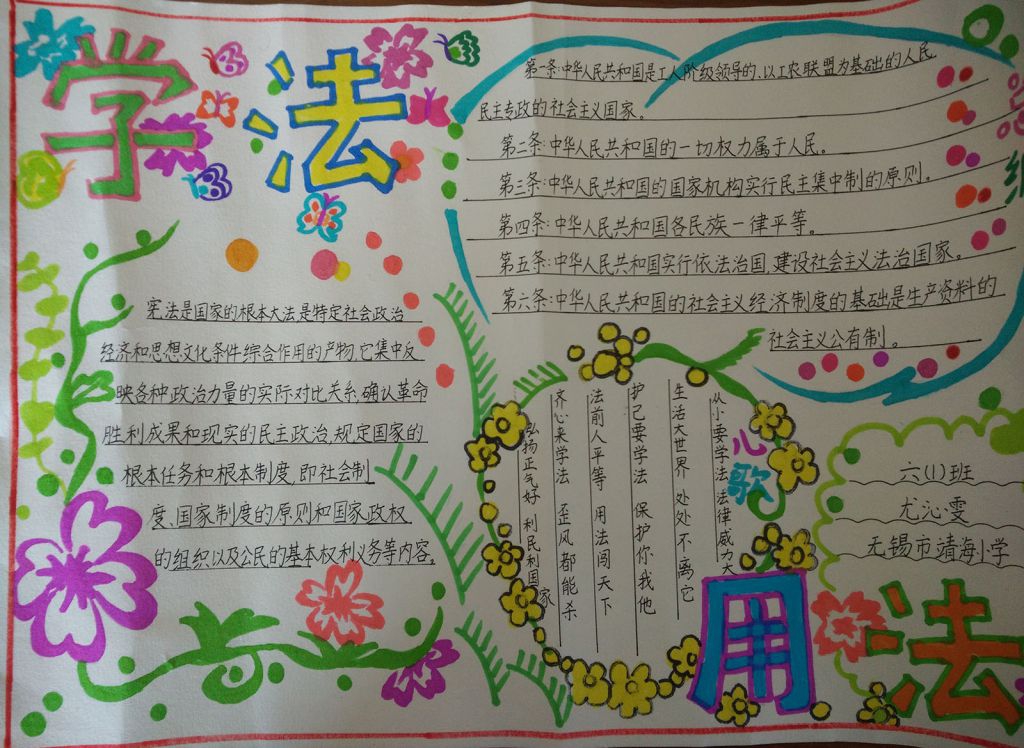 学法
第一条:中华人民共和国是工人阶级领导的、以工农联盟为基础的人民
民主专政的社会主义国家。
第二条:中华人民共和国的一切权力属于人民。
第三条:中华人民共和国的国家机构实行民主集中制的原则。
第四条:中华人民共和国各民族一律平等。
第五条:中华人民共和国实行依法治国,建设社会主义法治国家。
第六条:中华人民共和国的社会主义经济制度的基础是生产资料的
社会主义公有制。
宪法是国家的根本大法是特定社会政治
经济和思想文化条件综合作用的产物,它集中反
映各种政治力量的实际对比关系,确认革命
胜利成果和现实的民主政治,规定国家的
根本任务和根本制度,即社会制
度、国家制度的原则和国家政权
的组织以及公民的基本权利义务等内容。
儿歌
从小要学法 法律威力大
生活大世界 处处不离它
护己要学法 保护你我他
法前人平等 用法闯天下
齐心来学法 歪风都能杀
弘扬正气好 利民利国家
六(1)班
尤沁雯
无锡市靖海小学
用法